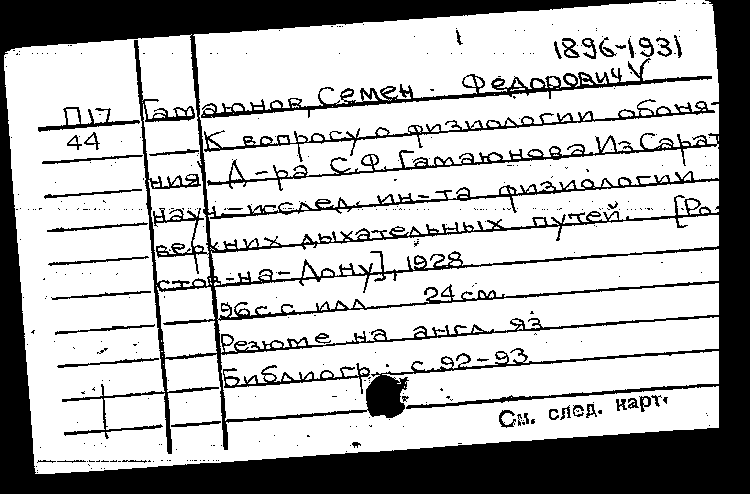 1896-1931
П17 Гамаюнов, Семен Федорович
44 К вопросу о физиологии обоня-
ния Д-ра С.Ф. Гамаюнова. Из Сарат
науч.-исслед. ин-та физиологии
верхних дыхательных путей. [Ро-
стов-на-Дону], 1928
96 с. с илл 24 см.
Резюме на англ. яз
Библиогр.: с. 92-93
См. след. карт.